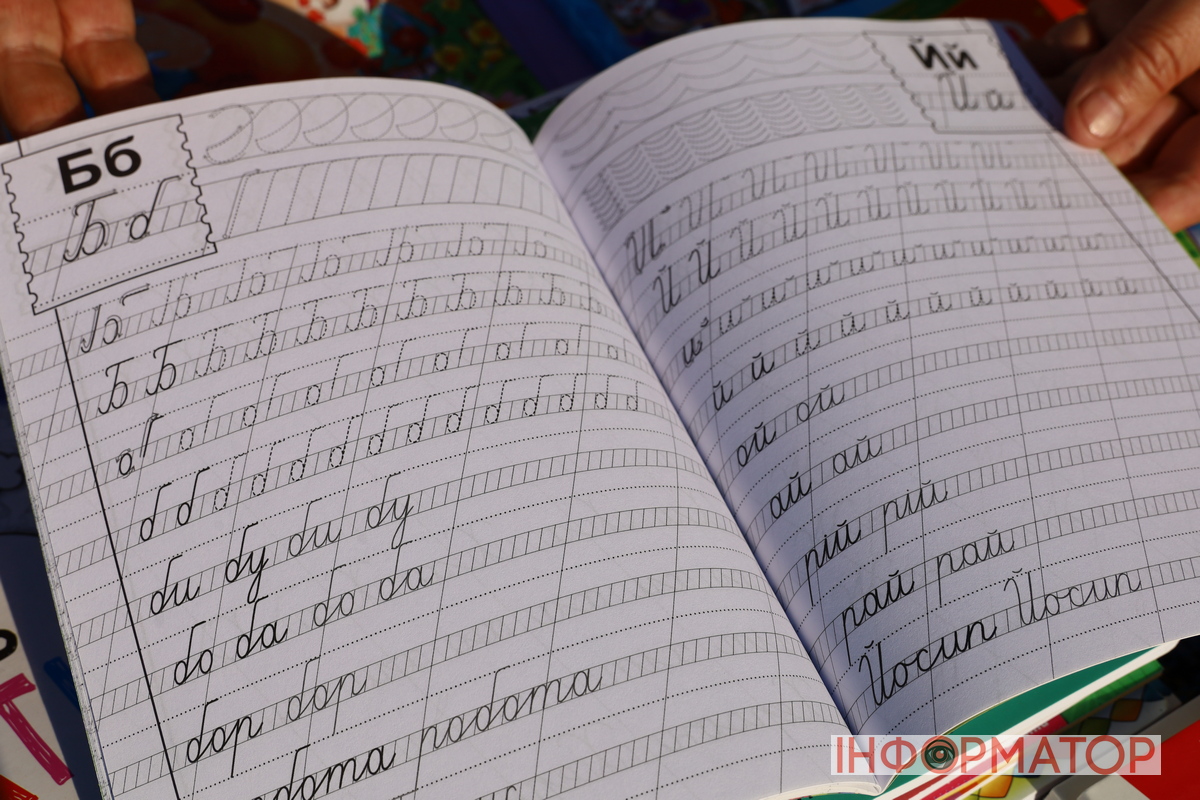 Бб
Б б
Б Б Б Б Б Б Б Б Б Б Б
б б б б б б б б б б б б б б
би бу би бу
бо ба бо ба
бор бор
обота робота
Йй
Й Й Й Й Й Й Й Й Й Й Й
й й й й й й й й й й й
ой ой
ай ай
рій рій
рай рай
Йосип Йосип
ІНФОРМАТОР